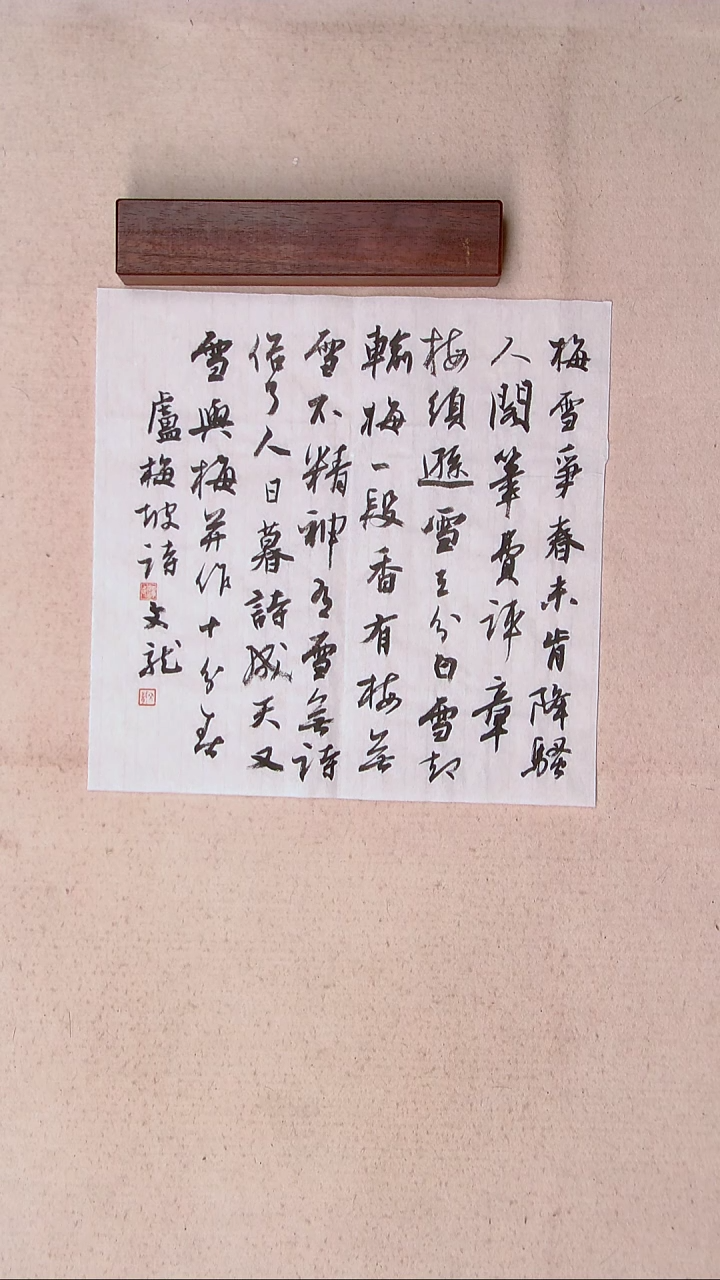 梅雪爭春未肯降騷
人閣筆費評章
梅須遜雪三分白雪却
輸梅一段香有梅無
雪不精神有雪無詩
俗了人日暮詩成天又
雪與梅并作十分春
盧梅坡詩
文龍